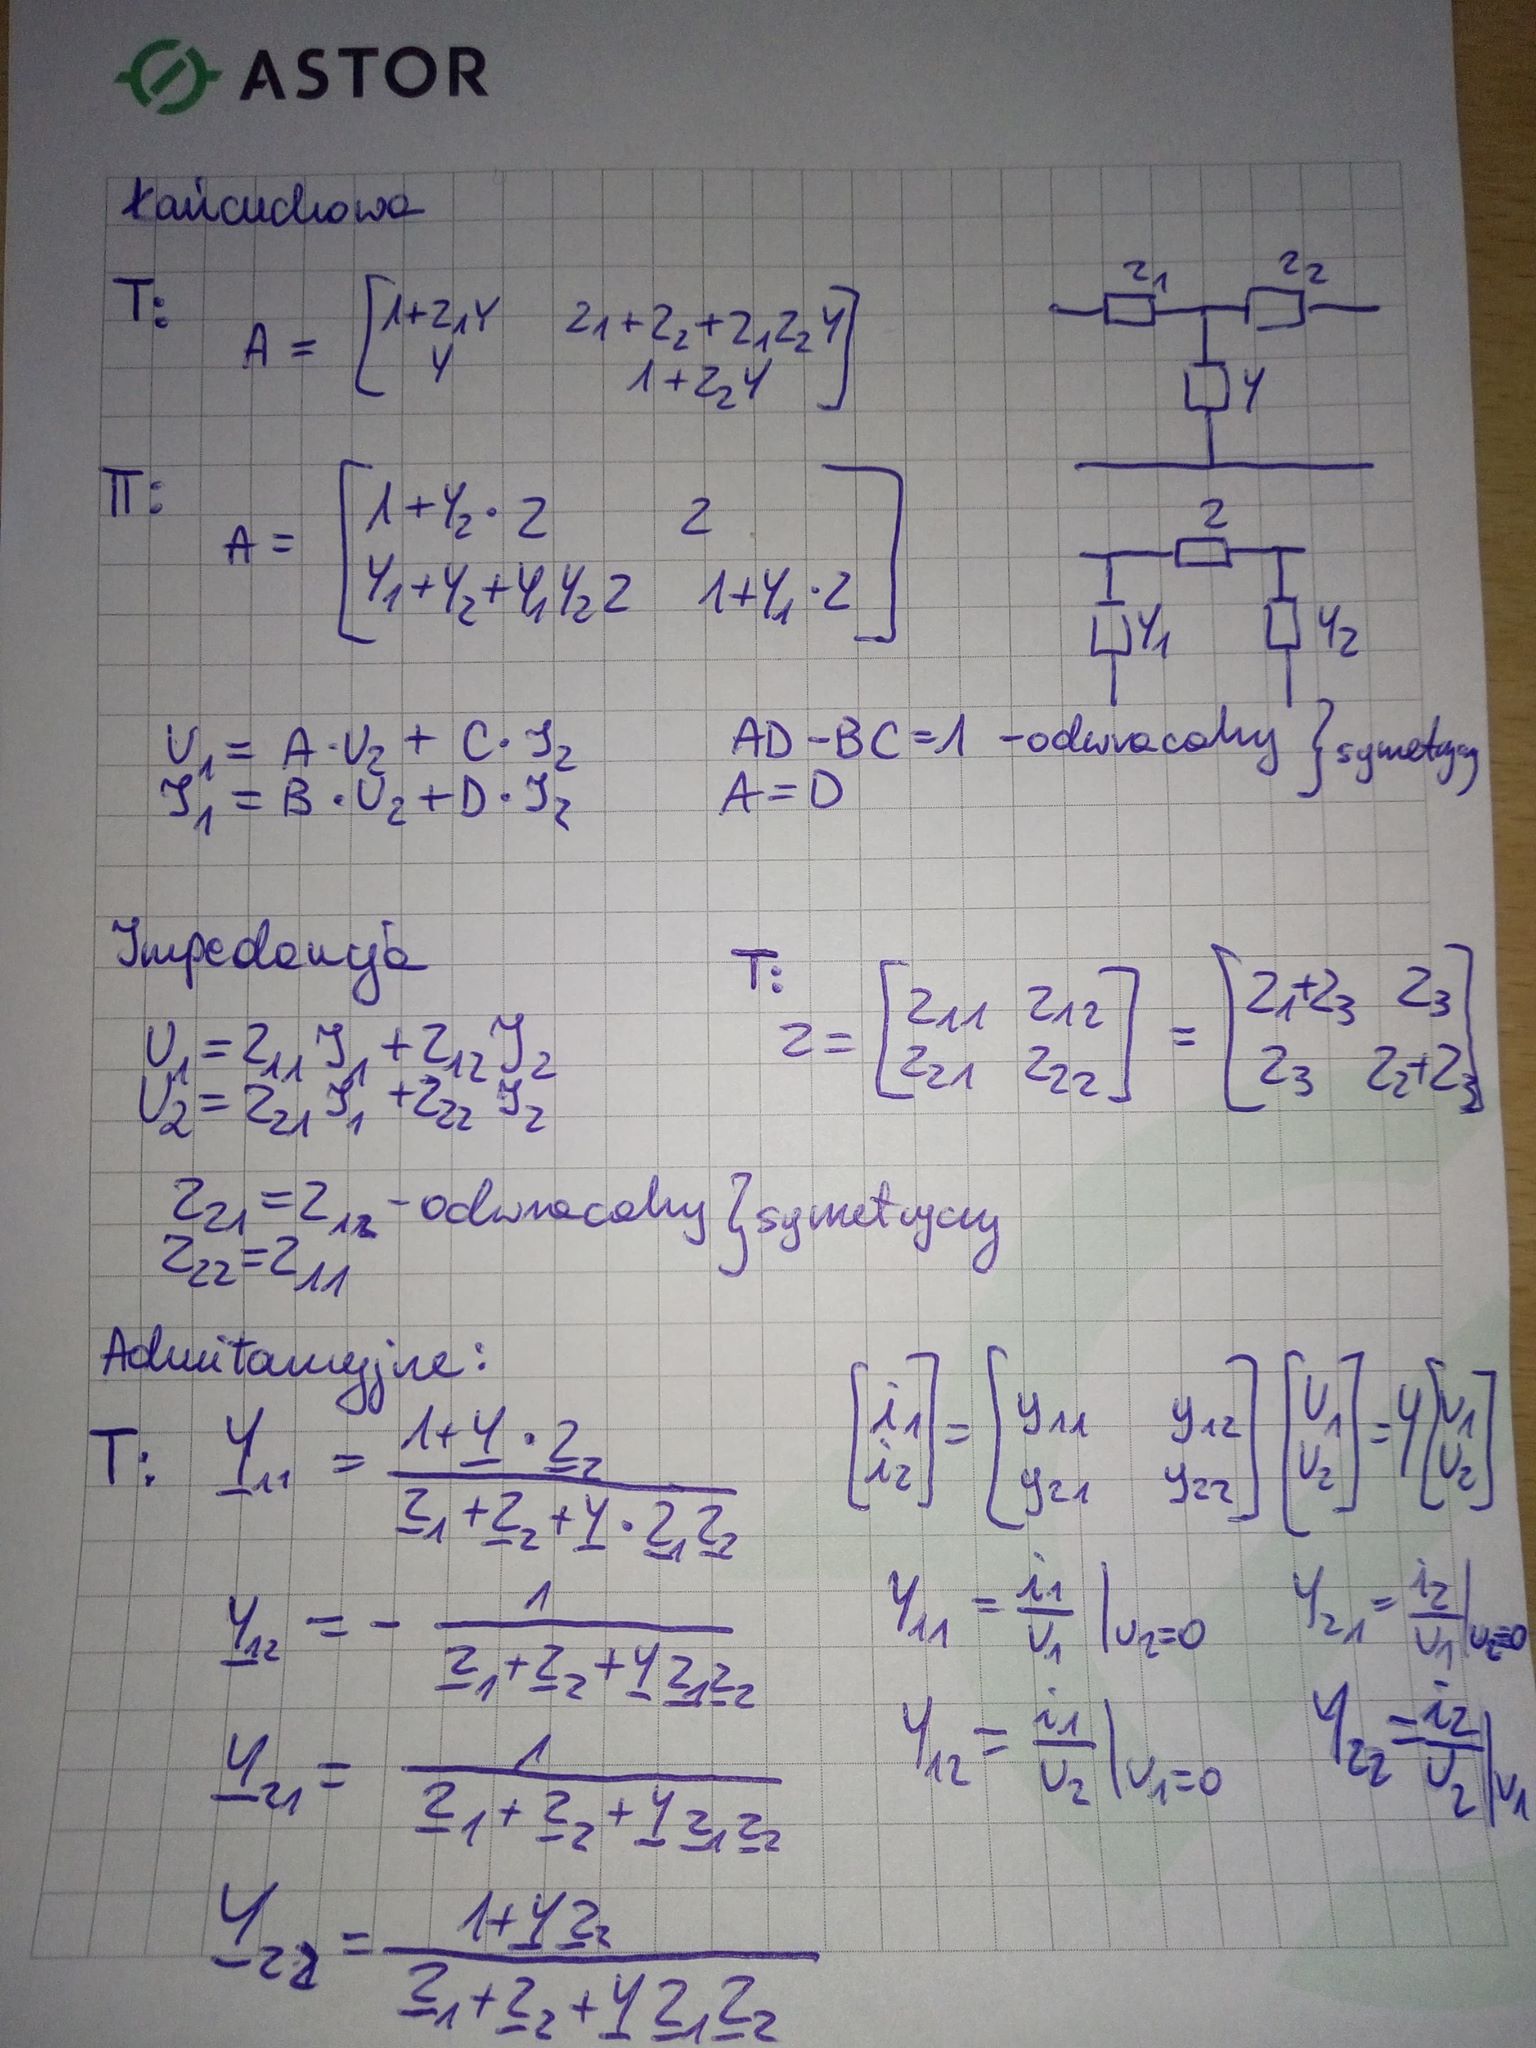 ASTOR
Łańcuchowa
T: A = [1+Z₁Y Z₁+Z₂+Z₁Z₂Y
Y 1+Z₂Y]
Z₁ Z₂
Y
Π: A = [1+Y₂·Z Z
Y₁+Y₂+Y₁Y₂Z 1+Y₁·Z]
Z
Y₁ Y₂
U₁ = A·U₂ + C·I₂
I₁ = B·U₂ + D·I₂
AD-BC=1 - odwracalny } symetryczny
A=D
Impedancja
U₁ = Z₁₁ I₁ + Z₁₂ I₂
U₂ = Z₂₁ I₁ + Z₂₂ I₂
T:
Z = [Z₁₁ Z₁₂ = [Z₁+Z₃ Z₃
Z₂₁ Z₂₂] Z₃ Z₂+Z₃]
Z₂₁=Z₁₂ - odwracalny } symetryczny
Z₂₂=Z₁₁
Admitancyjne:
T: Y₁₁ = (1+Y·Z₂)/(Z₁+Z₂+Y·Z₁Z₂)
Y₁₂ = - 1/(Z₁+Z₂+Y Z₁Z₂)
Y₂₁ = 1/(Z₁+Z₂+Y Z₁Z₂)
Y₂₂ = (1+Y Z₂)/(Z₁+Z₂+Y Z₁Z₂)
[i₁ = [y₁₁ y₁₂ [U₁ = Y [U₁
i₂] y₂₁ y₂₂] U₂] U₂]
Y₁₁ = i₁/U₁ |U₂=0 Y₂₁ = i₂/U₁ |U₂=0
Y₁₂ = i₁/U₂ |U₁=0 Y₂₂ = i₂/U₂ |U₁